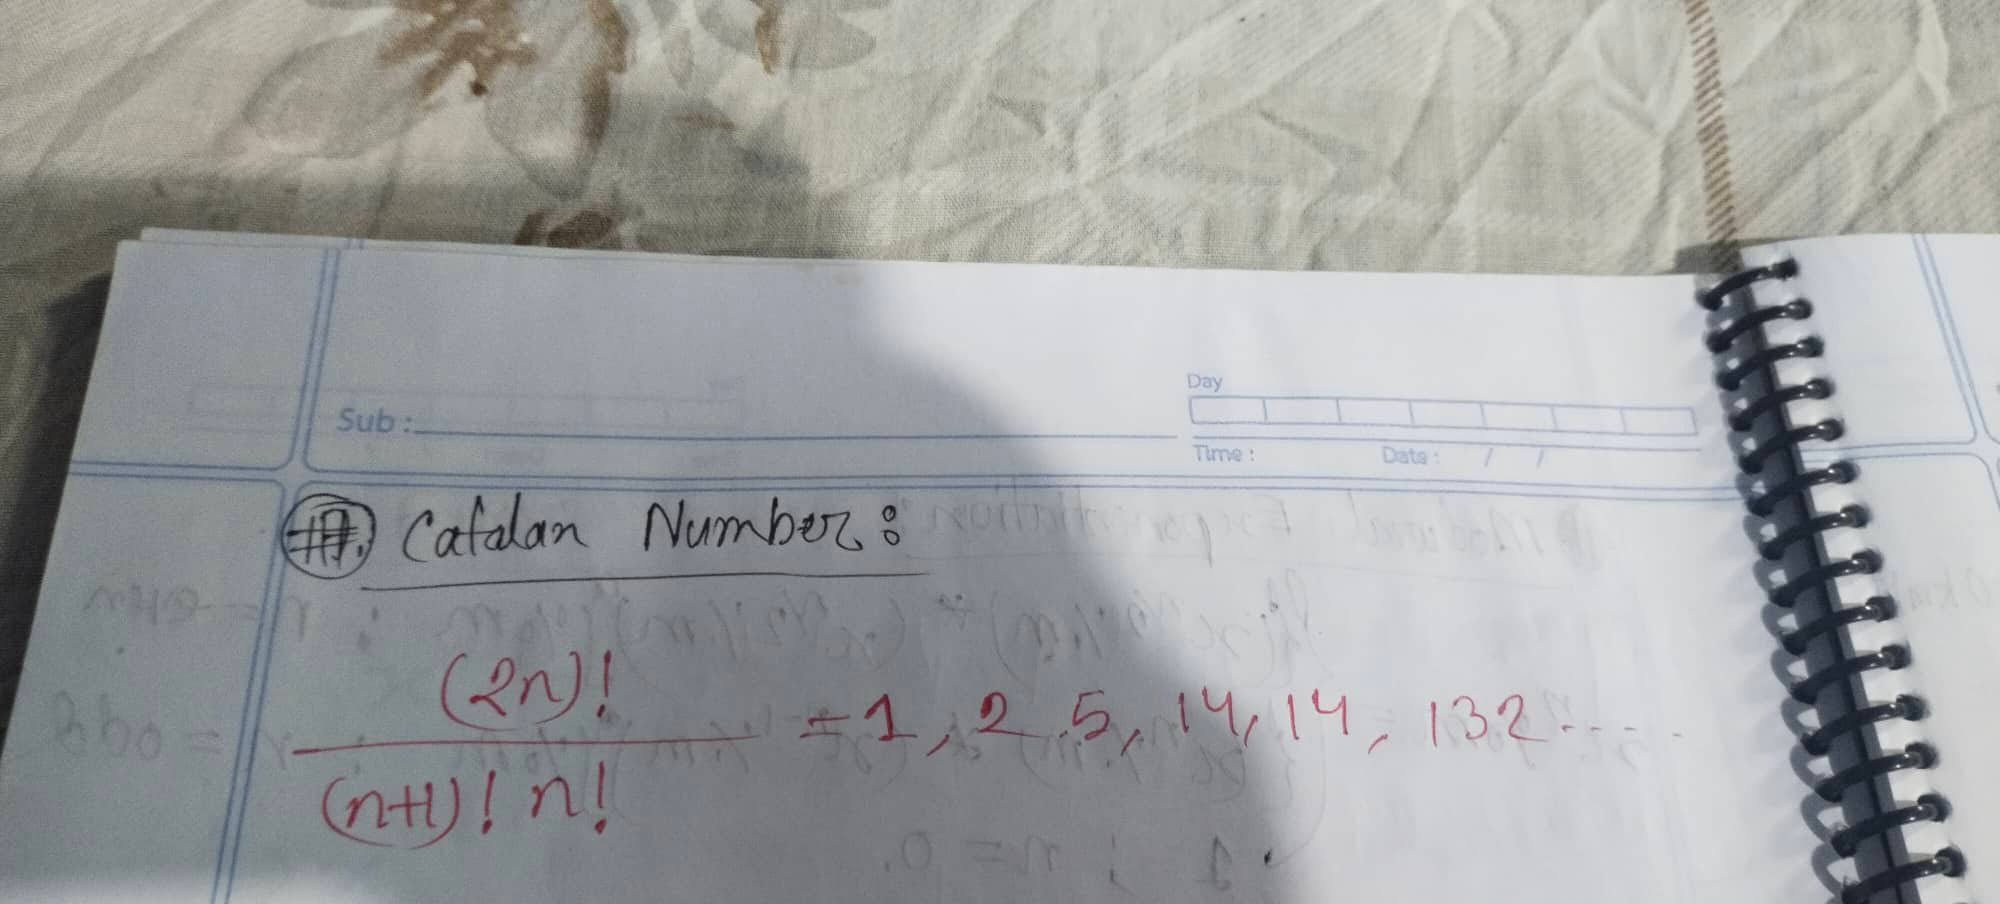 Day
Sub :
Time : Date : / /
#. Catalan Number :
(2n)!
(n+1)! n!
= 1, 2, 5, 14, 14, 132 ....